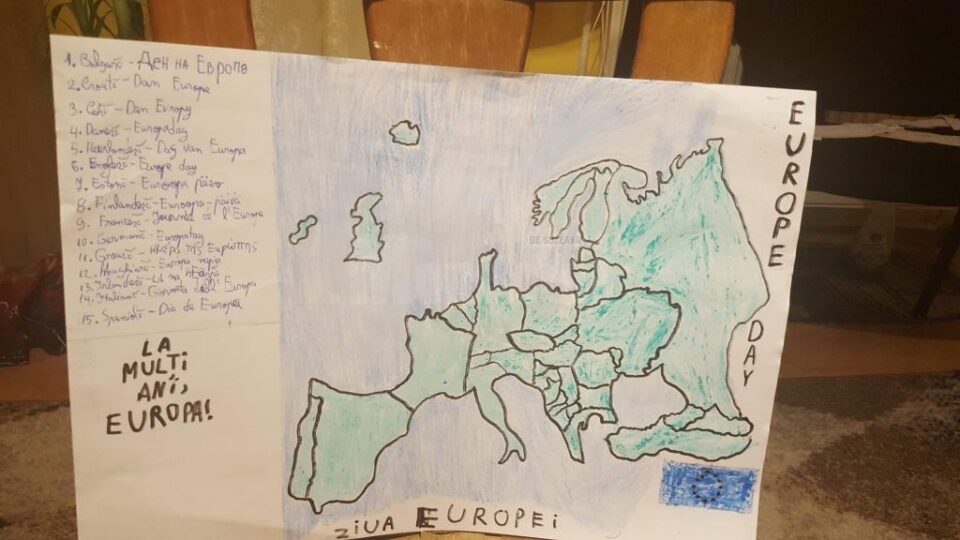 1. Bulgari - Ден на Европа
2. Croați - Dan Europe
3. Cehi - Den Evropy
4. Danezi - Europadag
5. Neerlandezi - Dag van Europa
6. Englezi - Europe day
7. Estoni - Euroopa päev
8. Finlandezi - Eurooppa-päivä
9. Francezi - Journée de l'Europe
10. Germani - Europatag
11. Greacă - Ημέρα της Ευρώπης
12. Maghiari - Europa napja
13. Irlandezi - Lá na hEorpa
14. Italiani - Giornata dell'Europa
15. Spanioli - Día de Europa
LA
MULTI
ANI,
EUROPA!
EUROPE
DAY
DE SUCEAVA
ZIUA EUROPEI